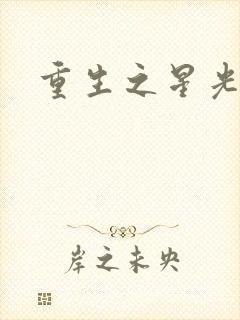 重生之星光
岸之未央